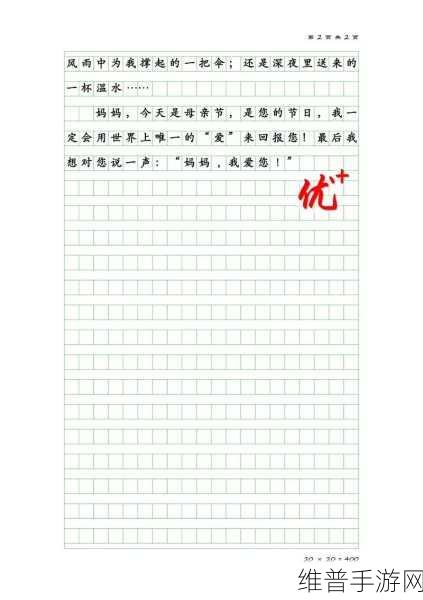 第 2 页 共 2 页
风雨中为我撑起的一把伞；还是深夜里送来的
一杯温水……
妈妈，今天是母亲节，是您的节日，我一
定会用世界上唯一的“爱”来回报您！最后我
想对您说一声：“妈妈，我爱您！”
优+
20 × 20 = 400
维普手游网